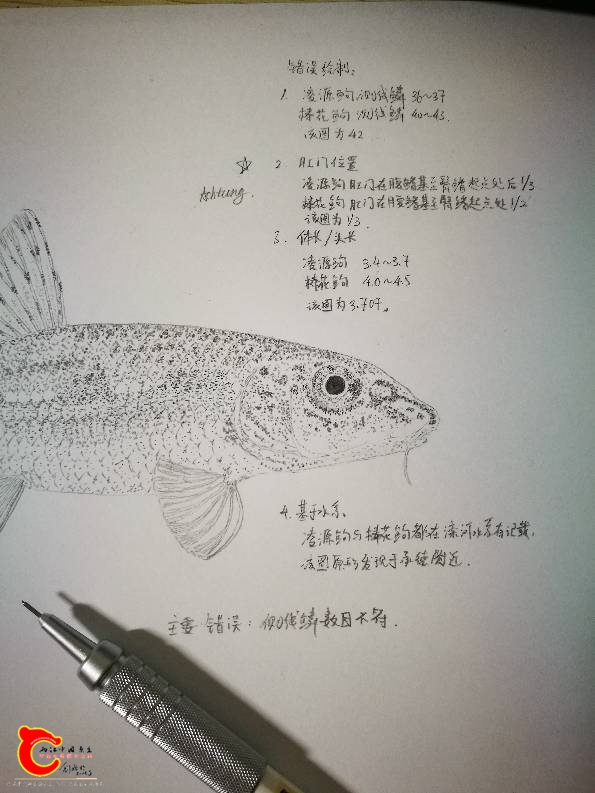 错误绘制:
1. 凌源鮈 侧线鳞 36~37
棒花鮈 侧线鳞 40~43.
该图为 42
☆ 2. 肛门位置
Achtung.
凌源鮈 肛门在腹鳍基至臀鳍起点处后 1/3
棒花鮈 肛门在腹鳍基至臀鳍起点处 1/2
该图为 1/3.
3. 体长/头长
凌源鮈 3.4~3.7
棒花鮈 4.0~4.5
该图为 3.707。
4. 基于水系.
凌源鮈与棒花鮈都在滦河水系有记载,
该图原形发现于承德附近.
主要错误: 侧线鳞数目不符.
两江中国原生